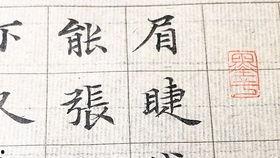 眉睫
能張
下又